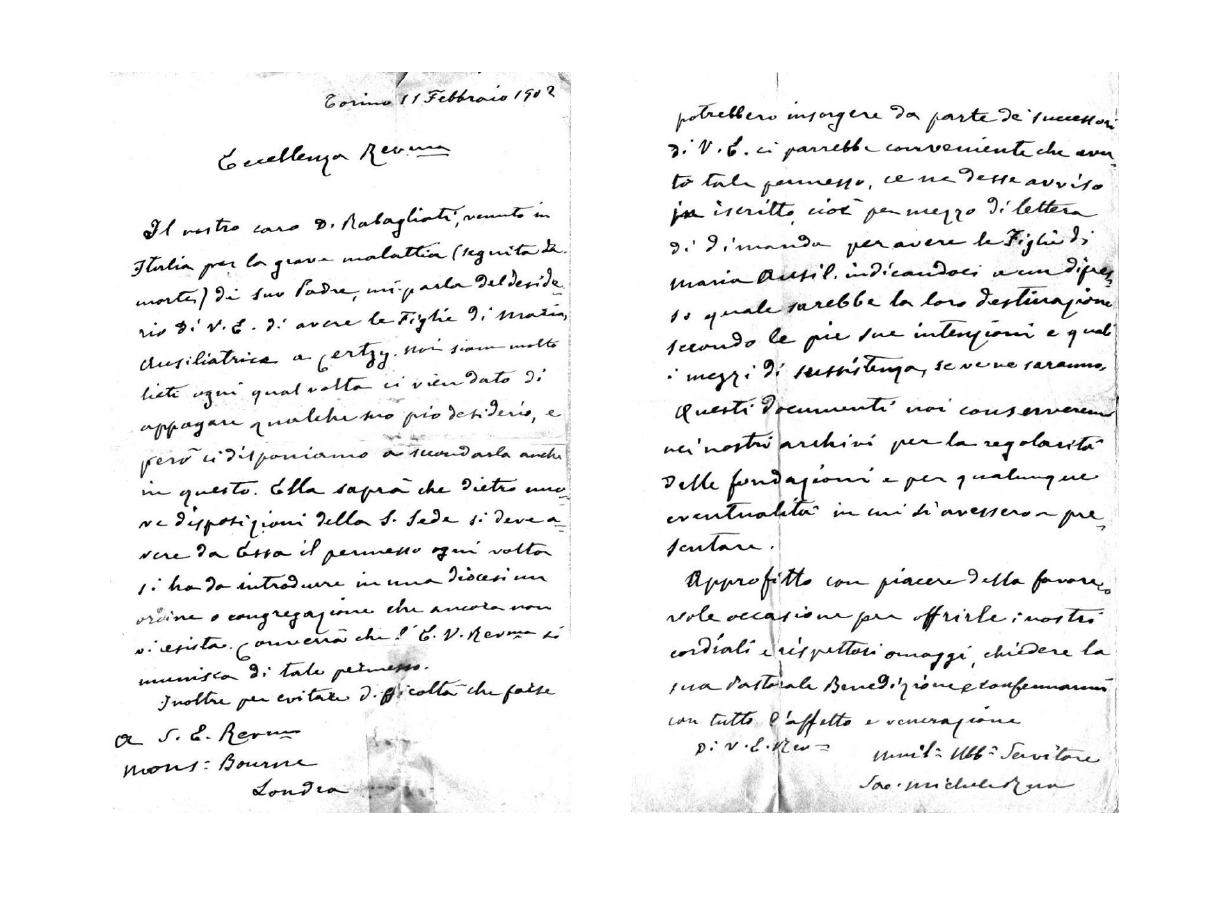 Torino 11 Febbraio 1902
Eccellenza Revma
Il nostro caro D. Rabagliati, venuto in
Italia per la grave malattia (seguita da
morte) di suo Padre, mi parla del deside
rio di V. E. di avere le Figlie di Maria
Ausiliatrice a Certzy. Noi siam molto
lieti ogni qual volta ci vien dato di
appagare qualche suo pio desiderio, e
però ci disponiamo a secondarla anche
in questo. Ella saprà che dietro nuo=
ve disposizioni della S. Sede si deve a=
vere da Essa il permesso ogni volta
si ha da introdurre in una diocesi un
ordine o congregazione che ancora non
vi esista. Converrà che l'E. V. Revma si
munisca di tale permesso.
Inoltre per evitare difficoltà che forse
A S. E. Revma
Mons: Bourne
Londra
potrebbero insorgere da parte de' successori
di V. E. ci parrebbe conveniente che avu=
to tale permesso, ce ne desse avviso
in iscritto, cioè per mezzo di lettera
di dimanda per avere le Figlie di
Maria Ausil. indicandoci a un dipres=
so quale sarebbe la loro destinazione
secondo le pie sue intenzioni e quali
i mezzi di sussistenza, se ve ne saranno.
Questi documenti noi conserveremo
nei nostri archivi per la regolarità
delle fondazioni e per qualunque
eventualità in cui si avessero a pre=
sentare.
Approfitto con piacere della favore=
vole occasione per offrirle i nostri
cordiali e rispettosi omaggi, chiedere la
sua Pastorale Benedizione e confermarmi
con tutto l'affetto e venerazione
Di V. E. Rev=
Umil= Obb= Servitore
Sac. Michele Rua